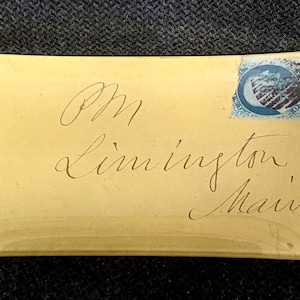 PM
Limington
Main